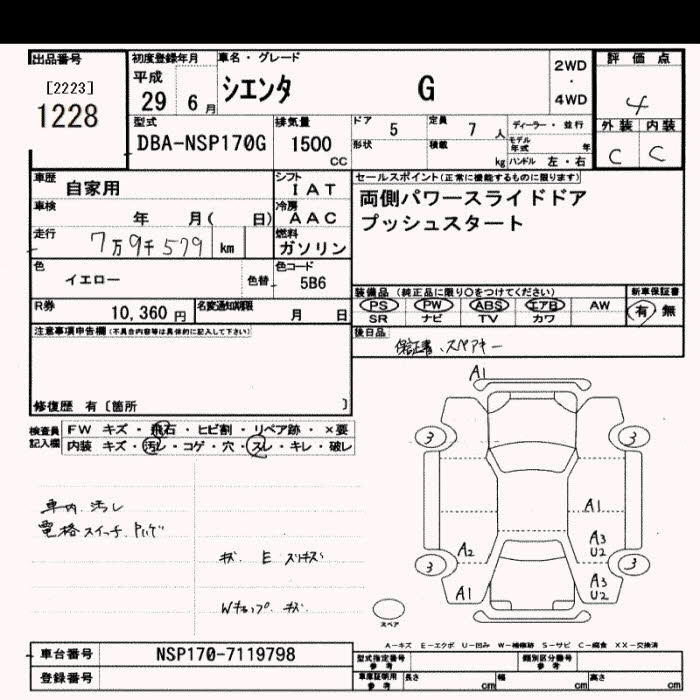 出品番号 初度登録年月 車名・グレード 2WD ・ 4WD 評価点
[2223] 平成 シエンタ G 4
1228 29 6月 外装 内装
型式 排気量 ドア 5 定員 7人 ディーラー・並行 C C
DBA-NSP170G 1500 CC 形状 積載 kg モデル年式 年
ハンドル 左・右
車歴 自家用 シフト IAT セールスポイント(正常に機能するものに限ります)
車検 年 月( 日) 冷房 AAC 両側パワースライドドア
走行 7万9千579 km 燃料 ガソリン プッシュスタート
色 イエロー 色替 色コード 5B6
装備品(純正品に限り○をつけてください) 新車保証書
R券 10,360円 名変通知期限 月 日 PS PW ABS エアB AW 有 無
SR ナビ TV カワ
注意事項申告欄(不具合内容等は具体的に記入して下さい) 後日品
保証書、スペアキー
修復歴 有〔箇所 〕
検査員記入欄 FW キズ・飛石・ヒビ割・リペア跡・×要
内装 キズ・汚レ・コゲ・穴・スレ・キレ・破レ
A1
3 3
車内汚レ A1
電格スイッチ
A2 A3 U2
キズ E スリキズ 3 3
A1 A3 U2
Wチップ キズ
スペア
A-キズ E-エクボ U-凹み W-補修跡 S-サビ C-腐食 XX-交換済
車台番号 NSP170-7119798 型式指定番号 参考 類別区分番号 参考
登録番号 車庫証明用 参考 長さ cm 幅 cm 高さ cm